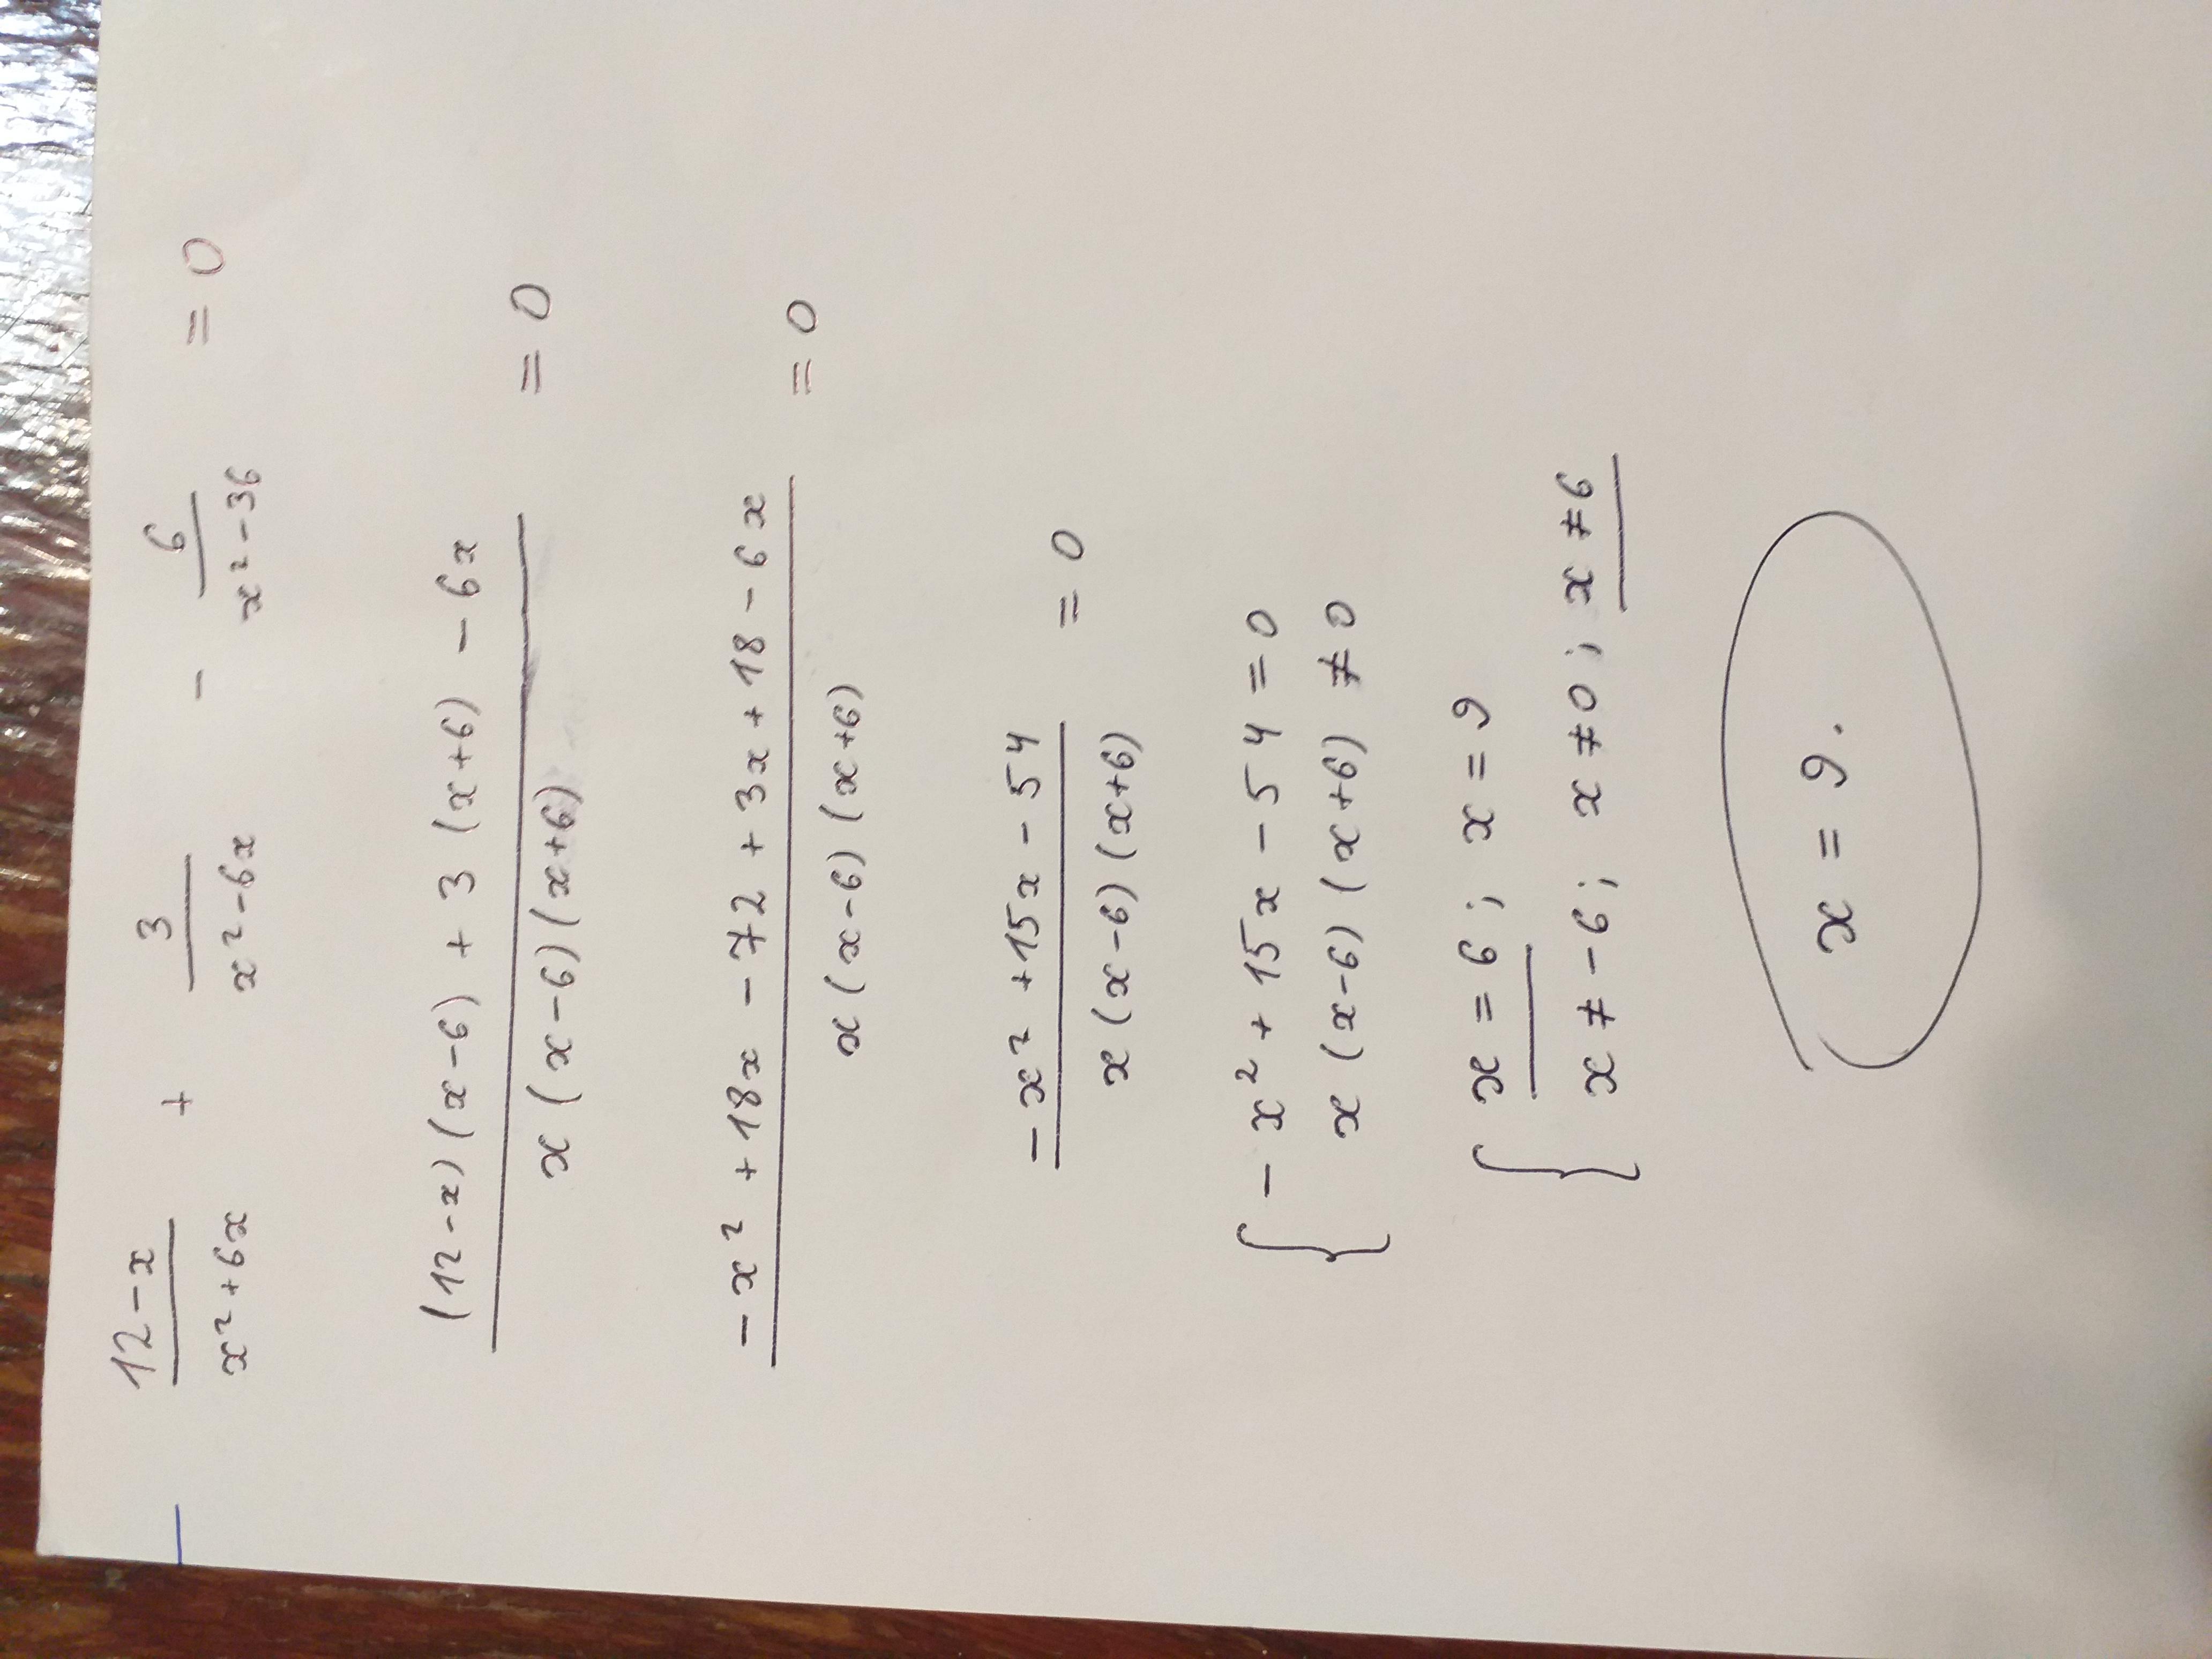 12-x / x²+6x + 3 / x²-6x - 6 / x²-36 = 0
(12-x)(x-6) + 3(x+6) - 6x / x(x-6)(x+6) = 0
-x² + 18x - 72 + 3x + 18 - 6x / x(x-6)(x+6) = 0
-x² + 15x - 54 / x(x-6)(x+6) = 0
{ -x² + 15x - 54 = 0
x(x-6)(x+6) ≠ 0
{ x = 6; x = 9
x ≠ -6; x ≠ 0; x ≠ 6
x = 9.